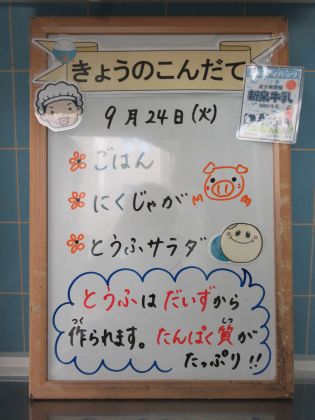 きょうのこんだて
9月24日(火)
ごはん
にくじゃが
とうふサラダ
とうふは だいずから
作られます。たんぱく質が
たっぷり!!